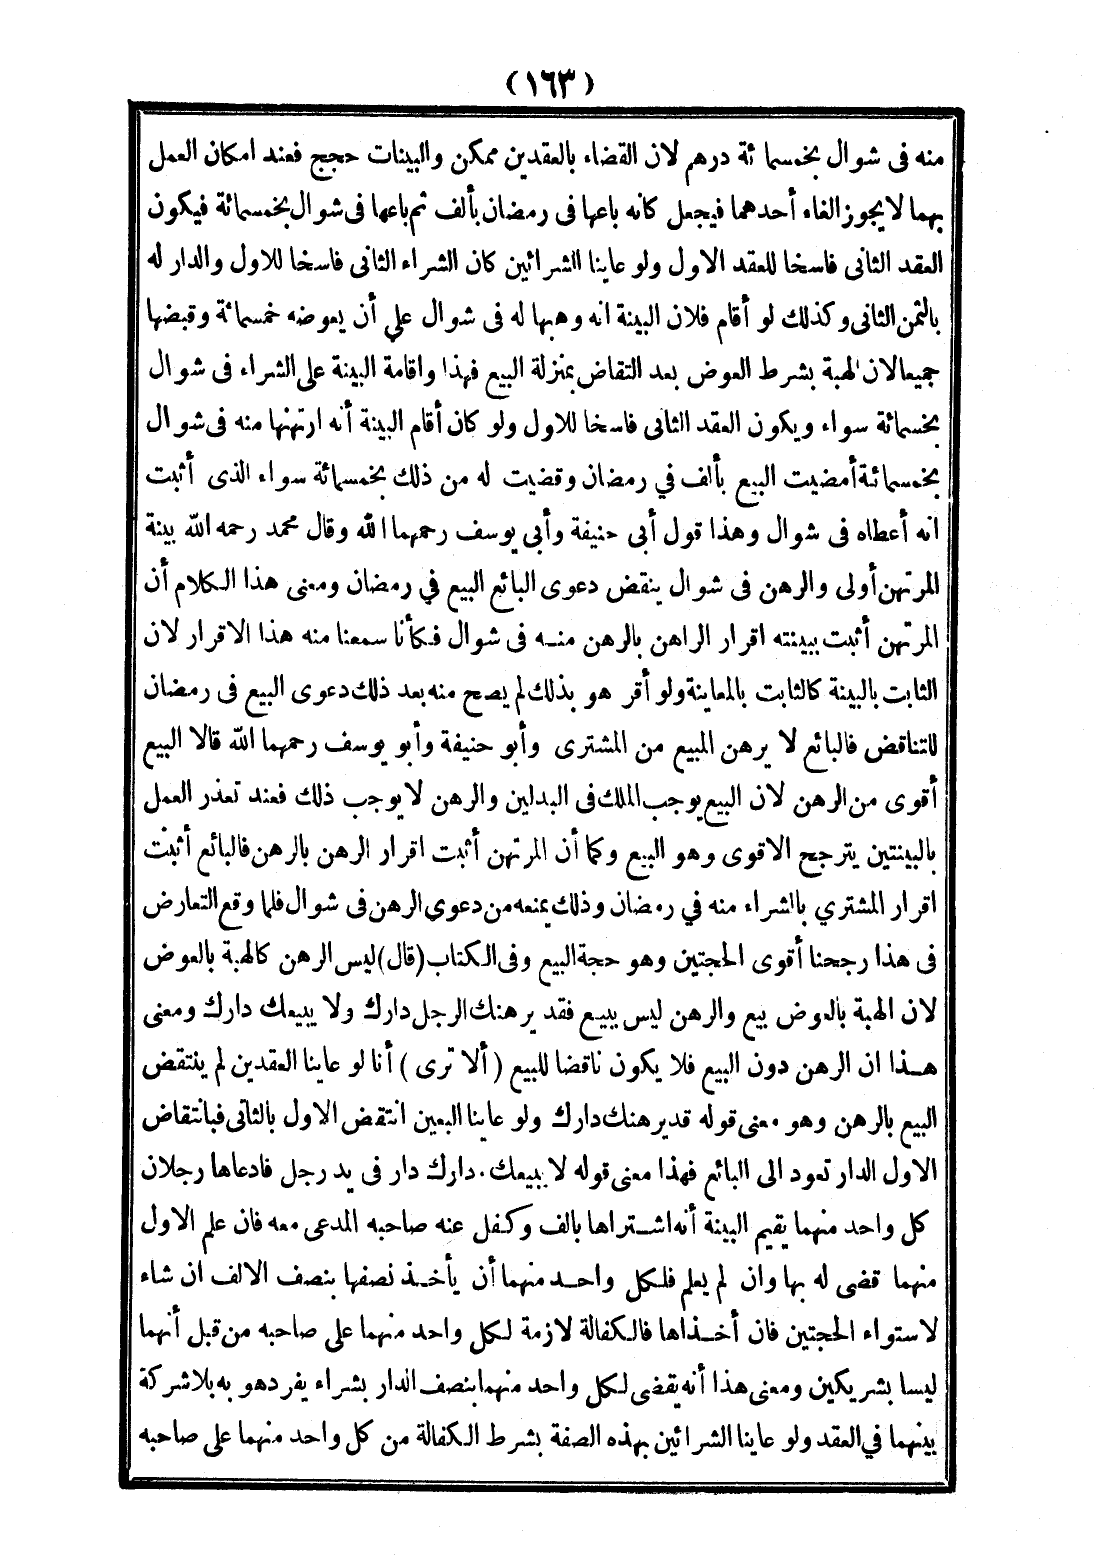 (١٦٣)
منه فى شوال بخمسمائة درهم لان القضاء بالعقدين ممكن والبينات حجج فعند امكان العمل
بهما لا يجوز الغاء أحدهما فيجعل كانه باعها فى رمضان بألف ثم باعها فى شوال بخمسمائة فيكون
العقد الثانى فاسخا للعقد الاول ولو عاينا الشرائين كان الشراء الثانى فاسخا للاول والدار له
بالثمن الثانى وكذلك لو أقام فلان البينة انه وهبها له فى شوال على أن يعوضه خمسمائة وقبضها
جميعا لان الهبة بشرط العوض بعد التقاض بمنزلة البيع فهذا واقامة البينة على الشراء فى شوال
بخمسمائة سواء ويكون العقد الثانى فاسخا للاول ولو كان أقام البينة أنه ارتهنها منه فى شوال
بخمسمائة أمضيت البيع بألف في رمضان وقضيت له من ذلك بخمسمائة سواء الذى أثبت
انه أعطاه فى شوال وهذا قول أبى حنيفة وأبي يوسف رحمهما الله وقال محمد رحمه الله بينة
المرتهن أولى والرهن فى شوال ينقض دعوى البائع البيع في رمضان ومعنى هذا الكلام أن
المرتهن أثبت ببينته اقرار الراهن بالرهن منه فى شوال فكأنا سمعنا منه هذا الاقرار لان
الثابت بالبينة كالثابت بالمعاينة ولو أقر هو بذلك لم يصح منه بعد ذلك دعوى البيع فى رمضان
للتناقض فالبائع لا يرهن المبيع من المشترى وأبو حنيفة وأبو يوسف رحمهما الله قالا البيع
أقوى من الرهن لان البيع يوجب الملك فى البدلين والرهن لا يوجب ذلك فعند تعذر العمل
بالبينتين يترجح الاقوى وهو البيع وكما أن المرتهن أثبت اقرار الرهن بالرهن فالبائع أثبت
اقرار المشتري بالشراء منه في رمضان وذلك يمنعه من دعوى الرهن فى شوال فلما وقع التعارض
فى هذا رجحنا أقوى الحجتين وهو حجة البيع وفى الكتاب (قال) ليس الرهن كالهبة بالعوض
لان الهبة بالعوض بيع والرهن ليس ببيع فقد يرهنك الرجل دارك ولا يبيعك دارك ومعنى
هذا ان الرهن دون البيع فلا يكون ناقضا للبيع (ألا ترى) أنا لو عاينا العقدين لم ينتقض
البيع بالرهن وهو معنى قوله قد يرهنك دارك ولو عاينا البيعين انتقض الاول بالثانى فبانتقاض
الاول الدار تعود الى البائع فهذا معنى قوله لا يبيعك دارك. دار فى يد رجل فادعاها رجلان
كل واحد منهما يقيم البينة أنه اشتراها بالف وكفل عنه صاحبه المدعى معه فان علم الاول
منهما قضى له بها وان لم يعلم فلكل واحد منهما أن يأخذ نصفها بنصف الالف ان شاء
لاستواء الحجتين فان أخذاها فالكفالة لازمة لكل واحد منهما على صاحبه من قبل أنهما
ليسا بشريكين ومعنى هذا أنه يقضى لكل واحد منهما بنصف الدار بشراء يفرد هو به بلا شركة
بينهما في العقد ولو عاينا الشرائين بهذه الصفة بشرط الكفالة من كل واحد منهما على صاحبه